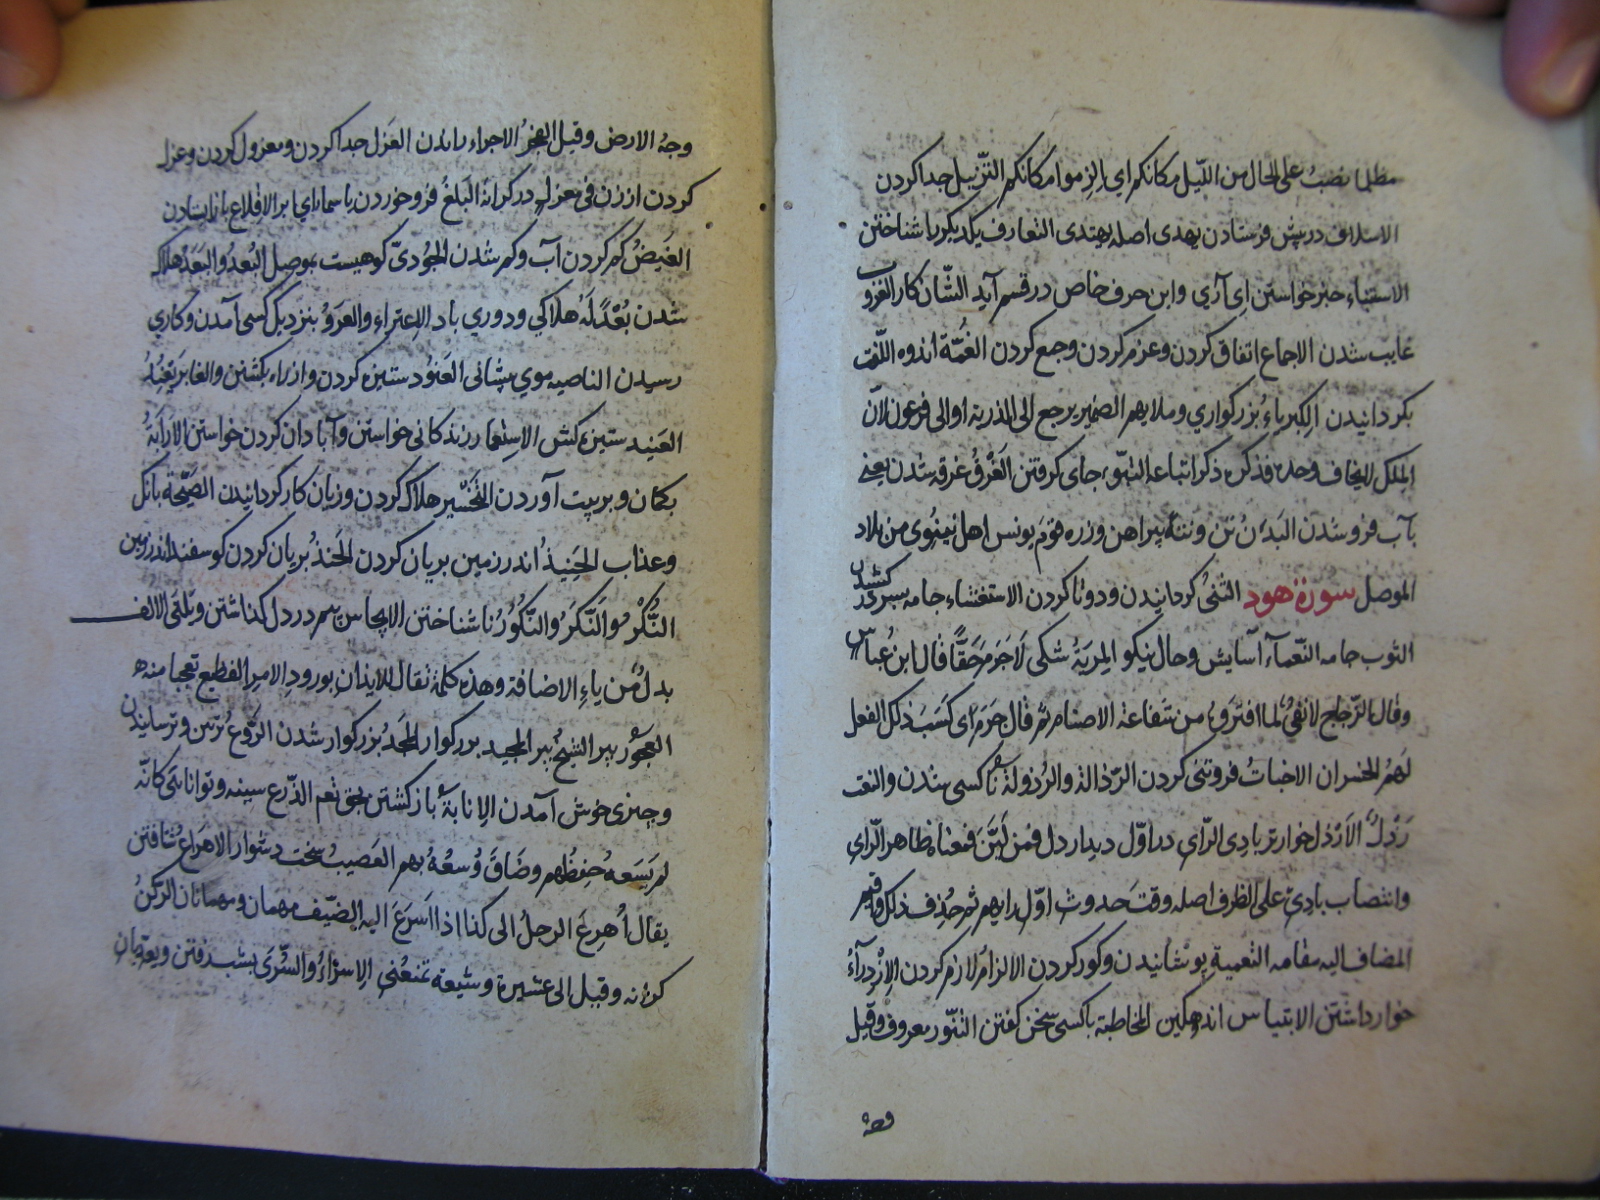 مظلما نصب على الحال من الليل مكانكم اي الزموا مكانكم التزييل جدا كردن
الاسلاف در پيش فرستادن يهدى اصله يهتدى التعارف يكديگر را شناختن
الاستنباء خبر خواستن اى آرى واين حرف خاص در قسم آيد الشّان كار العزوب
غايب شدن الاجماع اتفاق كردن وعزم كردن وجمع كردن الغمّة اندوه اللّفت
بگردانيدن الكبرياء بزرگواري وملايهم الضمير يرجع الى الذرية او الى فرعون لانّ
الملك اذا خاف وحده فذكره ذكر اتباعه التبوّء جاى گرفتن الغَرْقُ غرقه شدن يعنى
بآب فرو شدن البَدَنُ تن وتنه پيراهن وزره قوم يونس اهل نينوى من بلاد
الموصل سورة هود الثنىُ گردانيدن ودوتا كردن الاستغشاء جامه بسر در كشيدن
الثوب جامه النّعمآء آسايش وحال نيكو المِريَةُ شكى لَا جَرَمَ حَقًّا قال ابن عباس
وقال الزّجاج لا نَفىُ لما افتَرَوْا من شفاعة الاصنام ثم قال جَرَمَ اى كَسَبَ ذلك الفعل
لَهُمُ الخسران الاخباتُ فروتنى كردن الرّذالة والرُذولة ناكسى شدن والنعت
رَذْلٌ الاَرْذَل خوارتر بادِى الرّاي در اوّل ديدار دل فمن لَيَّنَ فمعناه ظاهر الرّاي
وانتصاب بادِى على الظرف اصله وقت حدوث اوّل رايهم ثم حُذِف ذلك واقيم
المضاف اليه مقامه التعمية پوشانيدن وكور كردن الالزامُ لازم كردن الاِزْدِرآءُ
خوار داشتن الابتياس اندوهگين المخاطبة با كسى سخن گفتن التنّور معروف وقيل
وجهُ الارض وقيل الفجرُ الاجراء راندن العَزل جدا كردن ومعزول كردن وعزل
كردن از زن فى معزلٍ در كرانه البَلعُ فرو خوردن يا سماء اي ابر الاقلاع باز ايستادن
الغَيضُ كم كردن آب وكم شدن الجُودىّ كوهيست بموصل البُعدُ والبَعَدُ هلاك
شدن بُعْدًا لَهُ هلاكي ودوري باد الاِعتراء والعَرْوُ بنزديك كسى آمدن وكاري
رسيدن الناصيه موي پيشانى العنود ستيزه كردن واز راه بگشتن والغابر يَعْنِدُ
العَنيد ستيزه كش الاستعمار زندگانى خواستن وآبادان كردن خواستن الاِرَابَةُ
بگمان وبريبت آوردن التَّخسير هلاك كردن وزيان كار گردانيدن الصَّيْحَة بانگ
وعذاب الحَنِيذُ اندر زمين بريان كردن الحَنذُ بريان كردن گوسفند اندر زمين
النُّكْرُ والنَّكَرُ والنُّكُورُ ناشناختن الايجاس بيم در دل گذاشتن ويلتى الالف
بدلُ من ياءِ الاضافة وهذه كلمة تقال للايذان بورودِ الامرِ الفظيع تعجبا منه
العجوز پير الشيخُ پير المجيد بزرگوار المجدُ بزرگوار شدن الرَّوعُ ترس وترسانيدن
وچيزى خوش آمدن الاِنابةُ باز گشتن بحق نعم الذّرع سينه وتوانائى كانّه
لم يَسَعهُ حِفظُهم وضَاقَ وُسعُهُ بهم العَصيبُ سخت دشوار الاهراعُ شتافتن
يقال اُهرِعَ الرجلُ الى كذا اذا اَسرَعَ اليه الضّيف مهمان ومهمانان الرّكنُ
كرانه وقيل الى عشيرة وشيعة تمنعُنى الاِسرَاءُ والسُّرَى بشب رفتن